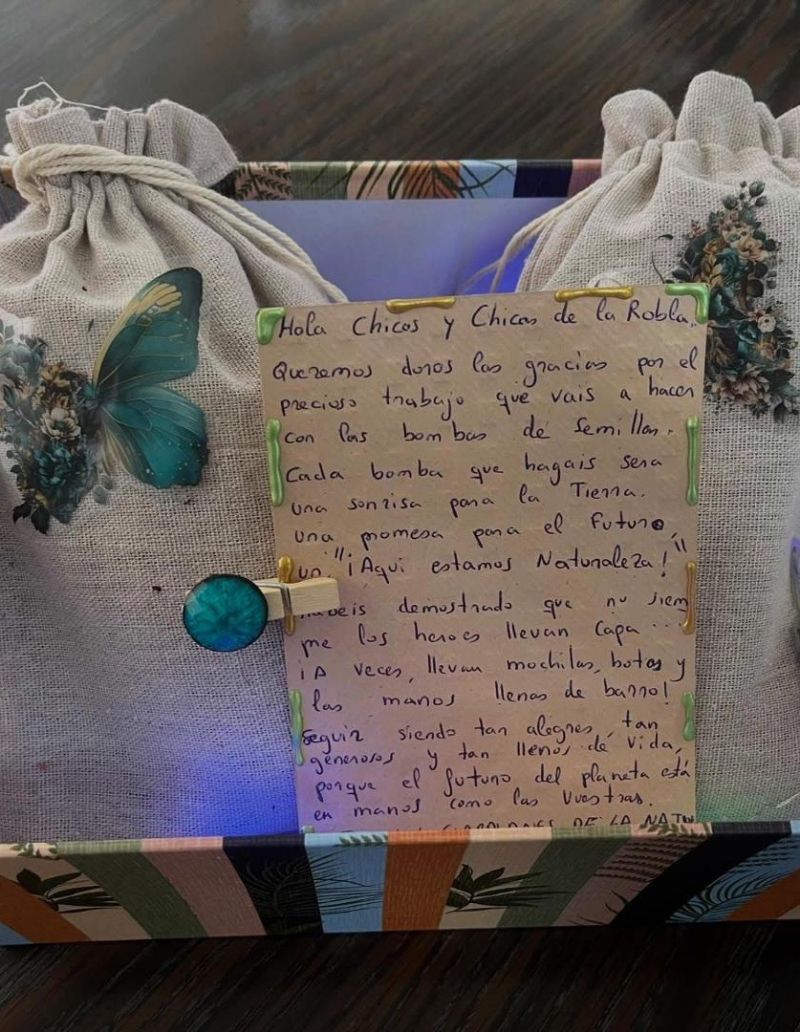 Hola Chicos y Chicas de la Robla,
Queremos daros las gracias por el
precioso trabajo que vais a hacer
con las bombas de semillas.
Cada bomba que hagais sera
una sonrisa para la Tierra.
una promesa para el futuro,
un "¡Aqui estamos Naturaleza!"
habeis demostrado que no siem
pre los heroes llevan capa...
¡A veces, llevan mochilas, botas y
las manos llenas de barro!
Seguir siendo tan alegres, tan
generosos y tan llenos de vida,
porque el futuro del planeta está
en manos como las vuestras.
DE LA NATU